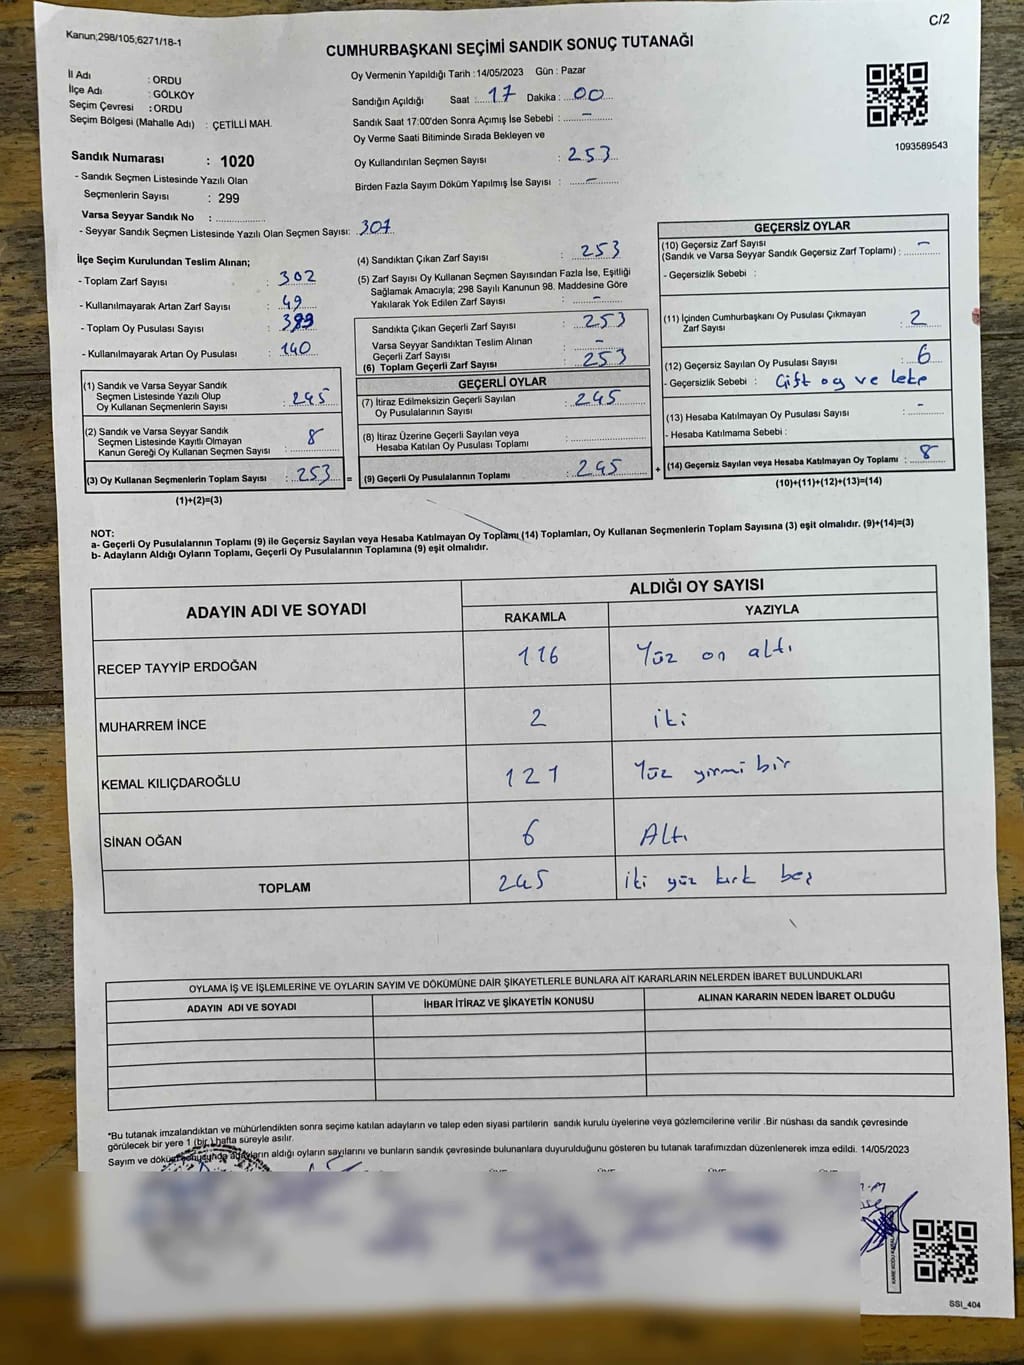 Kanun;298/105,6271/18-1
C/2
CUMHURBAŞKANI SEÇİMİ SANDIK SONUÇ TUTANAĞI
İl Adı : ORDU
İlçe Adı : GÖLKÖY
Seçim Çevresi : ORDU
Seçim Bölgesi (Mahalle Adı) : ÇETİLLİ MAH.
Sandık Numarası : 1020
- Sandık Seçmen Listesinde Yazılı Olan
Seçmenlerin Sayısı : 299
Varsa Seyyar Sandık No : ................
- Seyyar Sandık Seçmen Listesinde Yazılı Olan Seçmen Sayısı: 307
Oy Vermenin Yapıldığı Tarih :14/05/2023 Gün : Pazar
Sandığın Açıldığı Saat :.....17 Dakika :...00....
Sandık Saat 17:00'den Sonra Açımış İse Sebebi : .....-......
Oy Verme Saati Bitiminde Sırada Bekleyen ve
Oy Kullandırılan Seçmen Sayısı : 253
Birden Fazla Sayım Döküm Yapılmış İse Sayısı : .....-......
1093589543
İlçe Seçim Kurulundan Teslim Alınan;
- Toplam Zarf Sayısı : 302
- Kullanılmayarak Artan Zarf Sayısı : 49
- Toplam Oy Pusulası Sayısı : 393
- Kullanılmayarak Artan Oy Pusulası : 140
(1) Sandık ve Varsa Seyyar Sandık
Seçmen Listesinde Yazılı Olup
Oy Kullanan Seçmenlerin Sayısı : 245
(2) Sandık ve Varsa Seyyar Sandık
Seçmen Listesinde Kayıtlı Olmayan
Kanun Gereği Oy Kullanan Seçmen Sayısı : 8
(3) Oy Kullanan Seçmenlerin Toplam Sayısı : 253 =
(1)+(2)=(3)
(4) Sandıktan Çıkan Zarf Sayısı : 253
(5) Zarf Sayısı Oy Kullanan Seçmen Sayısından Fazla İse, Eşitliği
Sağlamak Amacıyla; 298 Sayılı Kanunun 98. Maddesine Göre
Yakılarak Yok Edilen Zarf Sayısı : -
Sandıkta Çıkan Geçerli Zarf Sayısı : 253
Varsa Seyyar Sandıktan Teslim Alınan
Geçerli Zarf Sayısı : -
(6) Toplam Geçerli Zarf Sayısı : 253
GEÇERLİ OYLAR
(7) İtiraz Edilmeksizin Geçerli Sayılan
Oy Pusulalarının Sayısı : 245
(8) İtiraz Üzerine Geçerli Sayılan veya
Hesaba Katılan Oy Pusulası Toplamı :
(9) Geçerli Oy Pusulalarının Toplamı : 245 +
GEÇERSİZ OYLAR
(10) Geçersiz Zarf Sayısı
(Sandık ve Varsa Seyyar Sandık Geçersiz Zarf Toplamı) : -
- Geçersizlik Sebebi :
(11) İçinden Cumhurbaşkanı Oy Pusulası Çıkmayan
Zarf Sayısı : 2
(12) Geçersiz Sayılan Oy Pusulası Sayısı : 6
- Geçersizlik Sebebi : Çift oy ve leke
(13) Hesaba Katılmayan Oy Pusulası Sayısı : -
- Hesaba Katılmama Sebebi :
(14) Geçersiz Sayılan veya Hesaba Katılmayan Oy Toplamı : 8
(10)+(11)+(12)+(13)=(14)
NOT:
a- Geçerli Oy Pusulalarının Toplamı (9) ile Geçersiz Sayılan veya Hesaba Katılmayan Oy Toplamı (14) Toplamları, Oy Kullanan Seçmenlerin Toplam Sayısına (3) eşit olmalıdır. (9)+(14)=(3)
b- Adayların Aldığı Oyların Toplamı, Geçerli Oy Pusulalarının Toplamına (9) eşit olmalıdır.
ADAYIN ADI VE SOYADI ALDIĞI OY SAYISI
RAKAMLA YAZIYLA
RECEP TAYYİP ERDOĞAN 116 Yüz on altı
MUHARREM İNCE 2 iki
KEMAL KILIÇDAROĞLU 121 Yüz yirmi bir
SİNAN OĞAN 6 Altı
TOPLAM 245 iki yüz kırk beş
OYLAMA İŞ VE İŞLEMLERİNE VE OYLARIN SAYIM VE DÖKÜMÜNE DAİR ŞİKAYETLERLE BUNLARA AİT KARARLARIN NELERDEN İBARET BULUNDUKLARI
ADAYIN ADI VE SOYADI İHBAR İTİRAZ VE ŞİKAYETİN KONUSU ALINAN KARARIN NEDEN İBARET OLDUĞU
*Bu tutanak imzalandıktan ve mühürlendikten sonra seçime katılan adayların ve talep eden siyasi partilerin sandık kurulu üyelerine veya gözlemcilerine verilir .Bir nüshası da sandık çevresinde
görülecek bir yere 1 (bir ) hafta süreyle asılır.
Sayım ve döküm sonucunda adayların aldığı oyların sayılarını ve bunların sandık çevresinde bulunanlara duyurulduğunu gösteren bu tutanak tarafımızdan düzenlenerek imza edildi. 14/05/2023
SSI_404